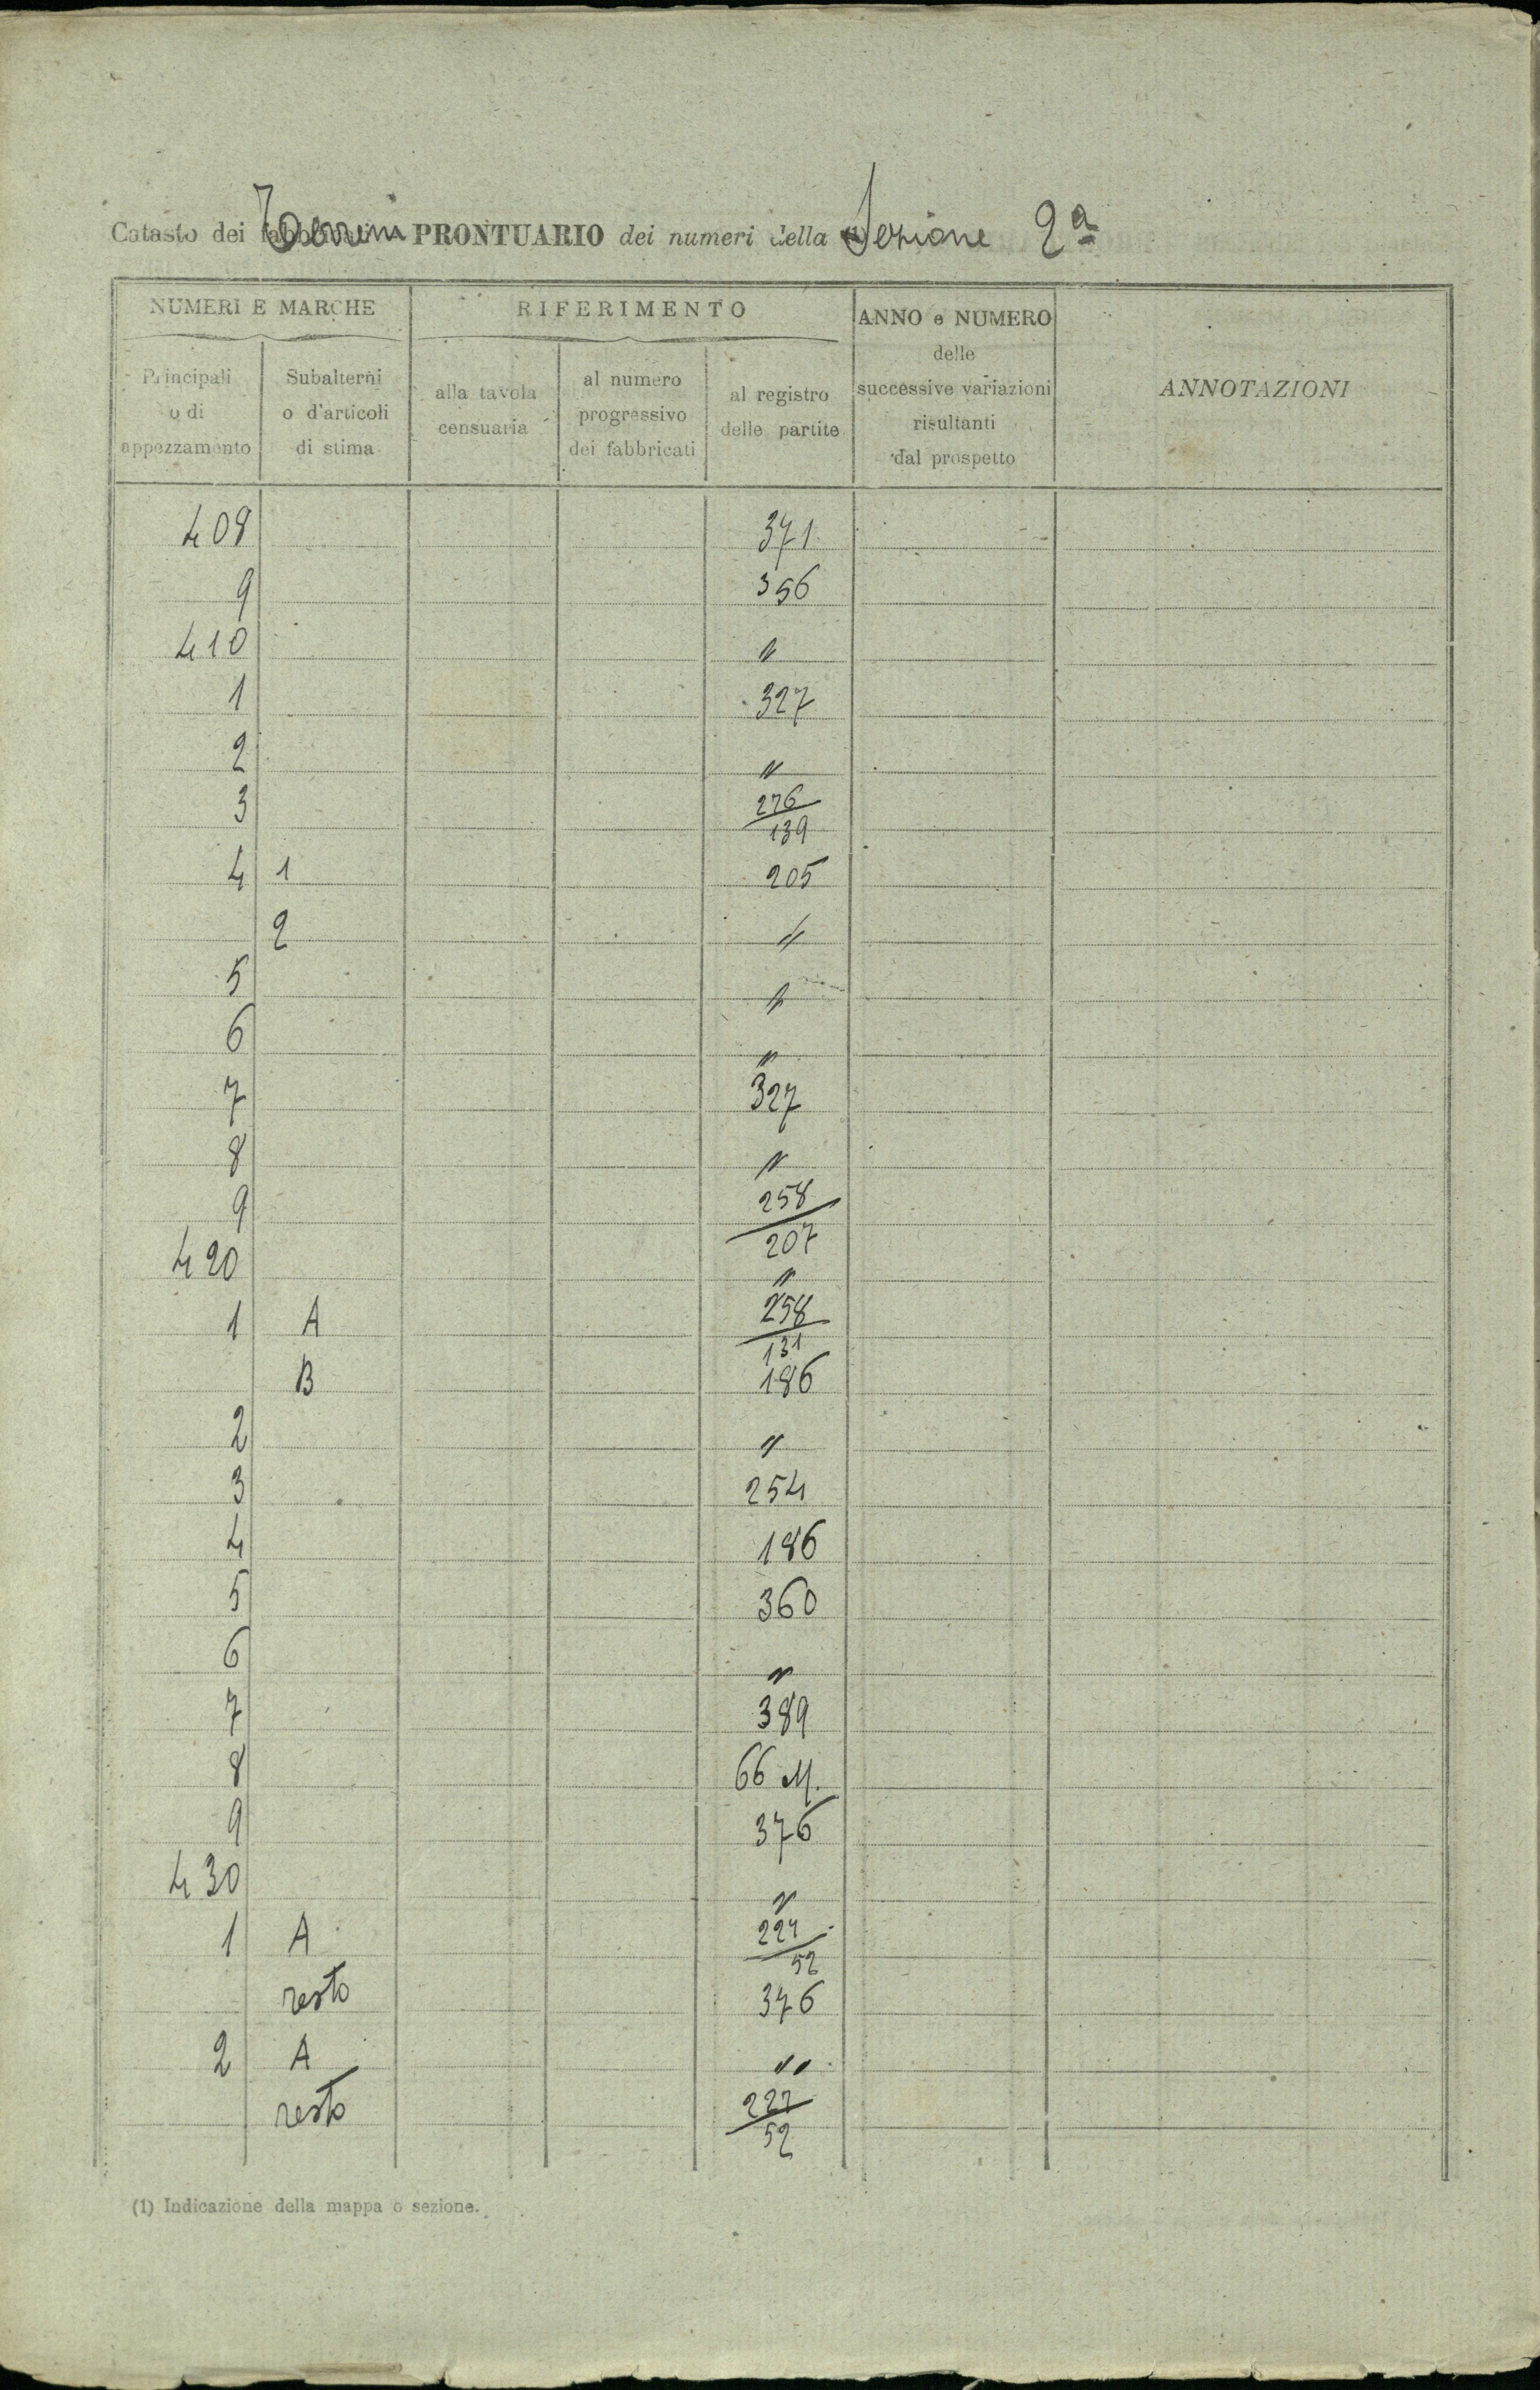 Catasto dei Terreni PRONTUARIO dei numeri della Sezione 2ª
NUMERI E MARCHE
RIFERIMENTO
ANNO e NUMERO
delle
successive variazioni
risultanti
dal prospetto
ANNOTAZIONI
Principali
o di
appezzamento
Subalterni
o d'articoli
di stima
alla tavola
censuaria
al numero
progressivo
dei fabbricati
al registro
delle partite
408 371
9 356
410 "
1 327
2 "
3 276/139
4 1 205
2 "
5 "
6 "
7 327
8 "
9 258/207
420 "
1 A 258/131
B 186
2 "
3 254
4 186
5 360
6 "
7 389
8 66 M.
9 376
430 "
1 A 227/52
resto 376
2 A "
resto 227/52
(1) Indicazione della mappa o sezione.